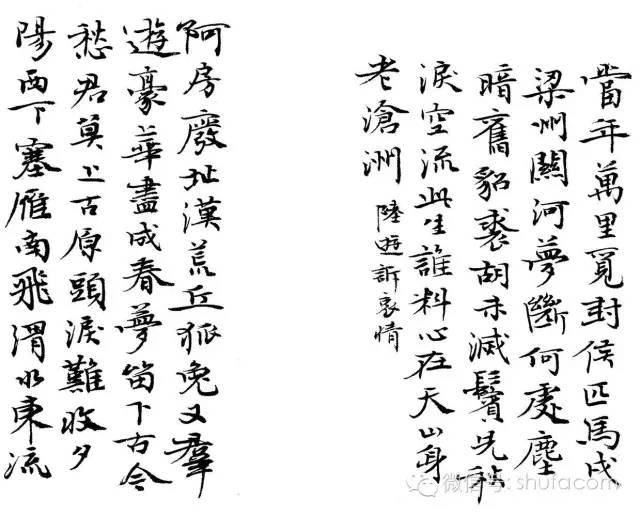 當年萬里覓封侯匹馬戍
梁州關河夢斷何處塵
暗舊貂裘胡未滅鬢先秋
淚空流此生誰料心在天山身
老滄洲 陸遊訴衷情
阿房廢址漢荒丘狐兔又羣
遊豪華盡成春夢留下古今
愁君莫上古原頭淚難收夕
陽西下塞雁南飛渭水東流
微信号: shufacom